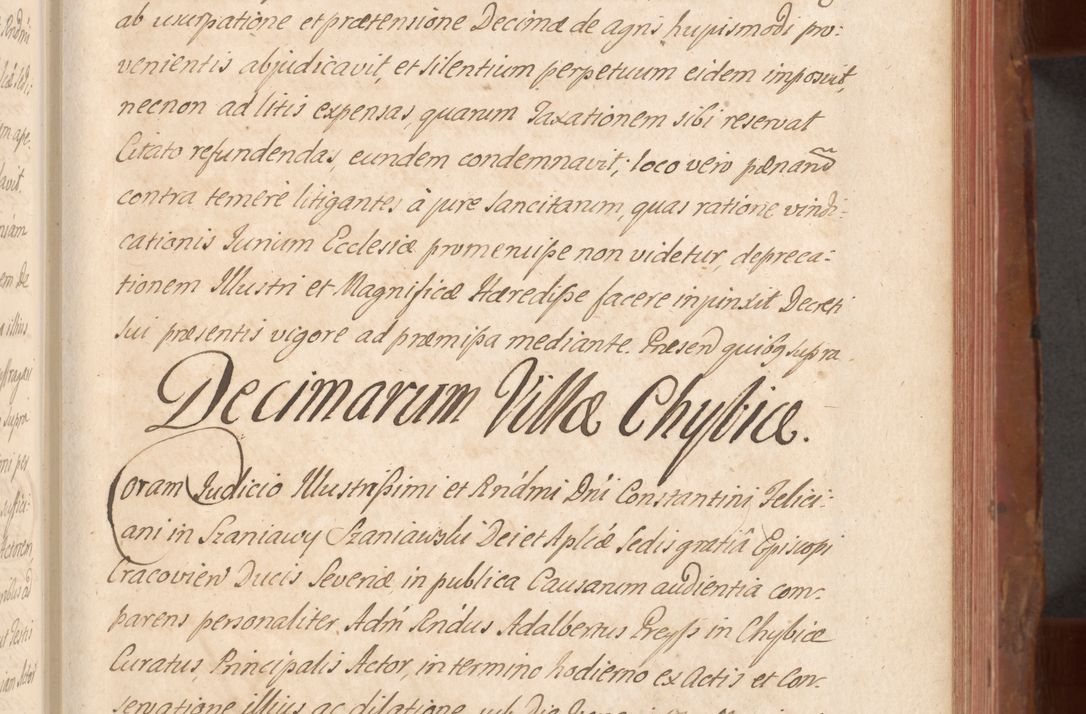 ab usurpatione et prætensione Decimæ de agris hujusmodi pro-
venientis abjudicavit, et silentium perpetuum eidem imposuit,
necnon ad litis expensas, quarum Taxationem sibi reservat
Citato refundendas, eundem condemnavit; loco vero pænarũ
contra temere litigantes à jure sancitarum, quas ratione vindi-
cationis Iurium Ecclesiæ promeruiße non videtur, depreca-
tionem Illustri et Magnificæ Hæredißæ facere injunxit Decreti
sui præsentis vigore ad præmißa mediante. Præsen quibq supra.
Decimarum Villæ Chybice.
Coram Iudicio Illustrißimi et Rndmi Dni Constantini Felici-
ani in Szaniawy Szaniawski Dei et Aplicæ Sedis gratiâ Episcopi
Cracovien Ducis Severiæ in publica Causarum audientia com-
parens personaliter Adm Rndus Adalbertus in Chybice
Curatus, Principalis Actor, in termino hodierno ex Actis et Con-
servatione illius ac dilatione